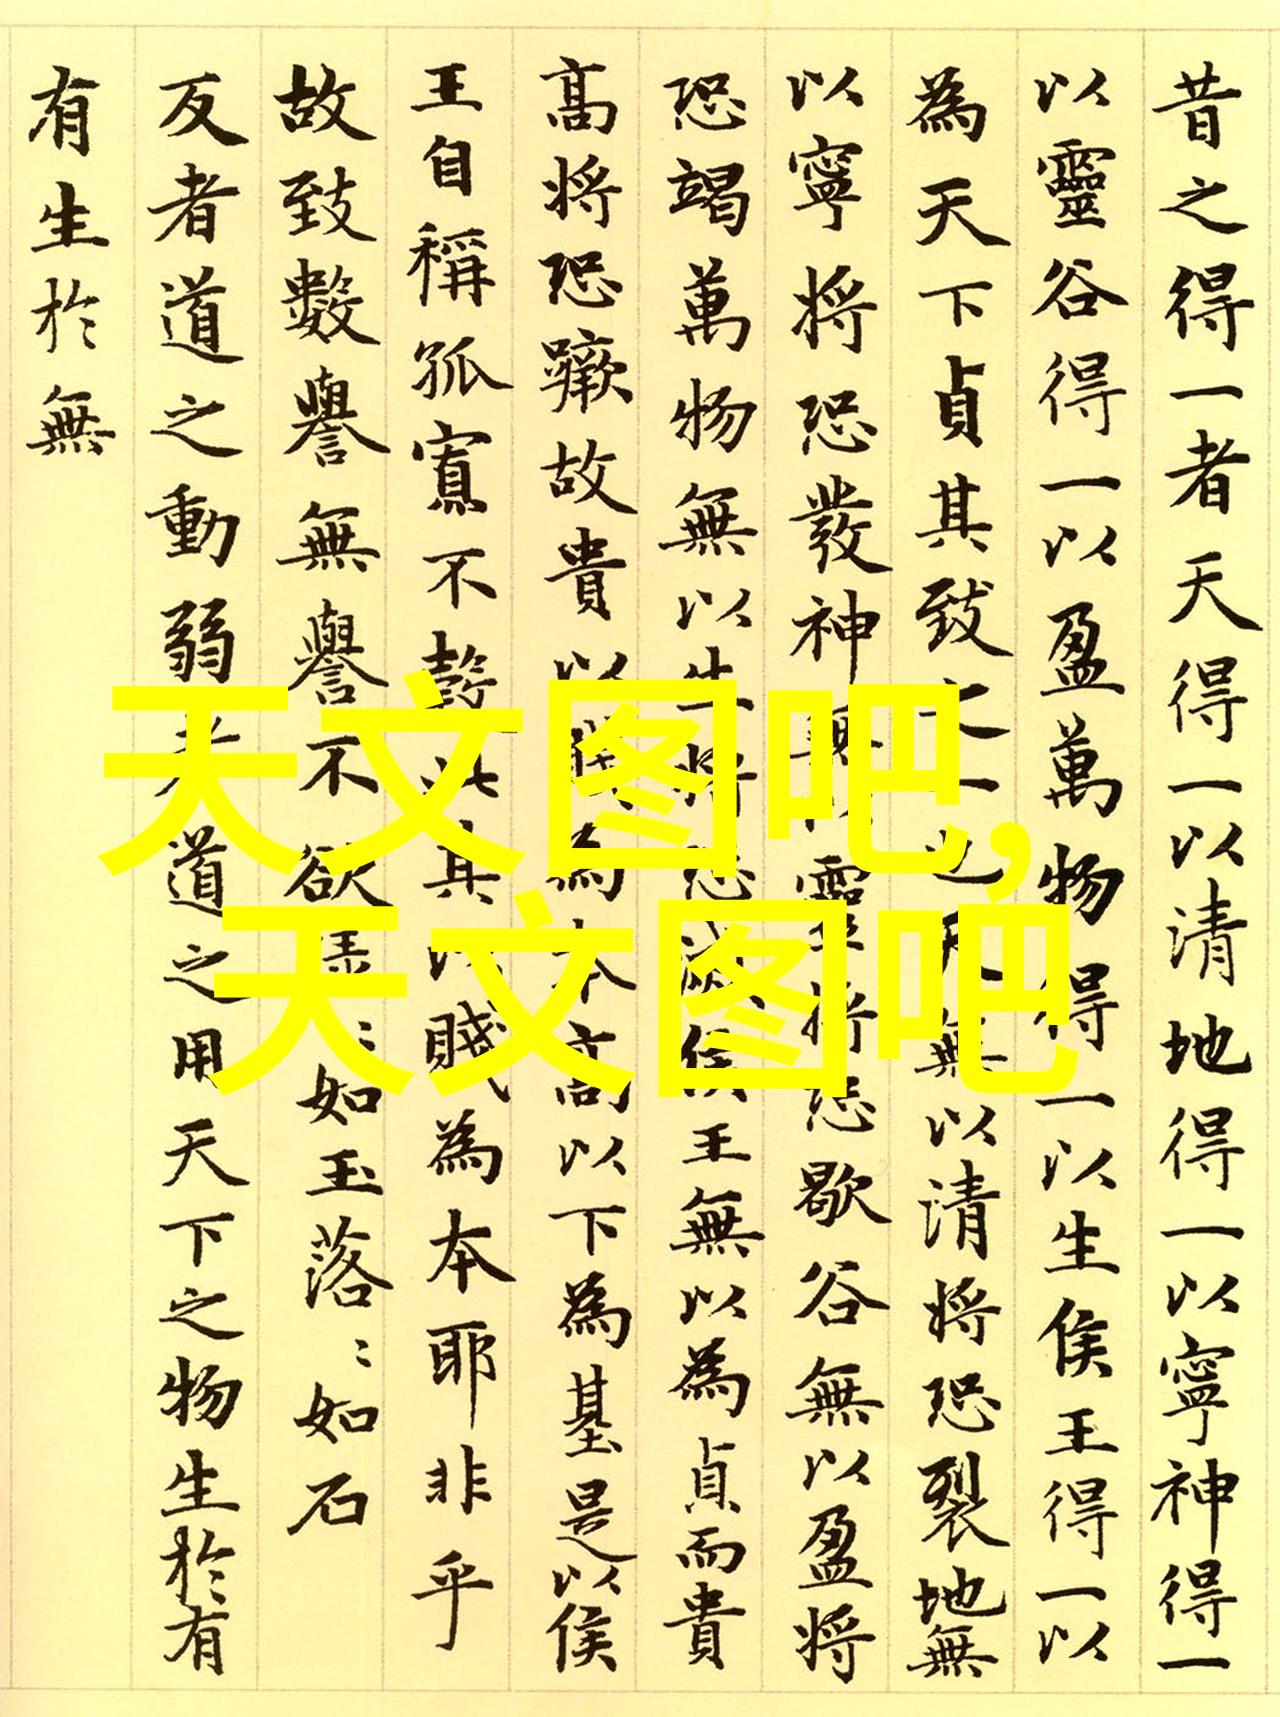 昔之得一者天得一以清地得一以寧神得一
以靈谷得一以盈萬物得一以生侯王得一以
為天下貞其致之一也天無以清将恐裂地無
以寧将恐發神無以靈将恐歇谷無以盈将
恐竭萬物無以生将恐滅侯王無以為貞而貴
高将恐蹶故貴以賤為本高以下為基是以侯
王自稱孤寡不穀此其以賤為本耶非乎
故致數譽無譽不欲琭〻如玉落〻如石
反者道之動弱者道之用天下之物生於有
有生於無
天文图吧,
天文图吧